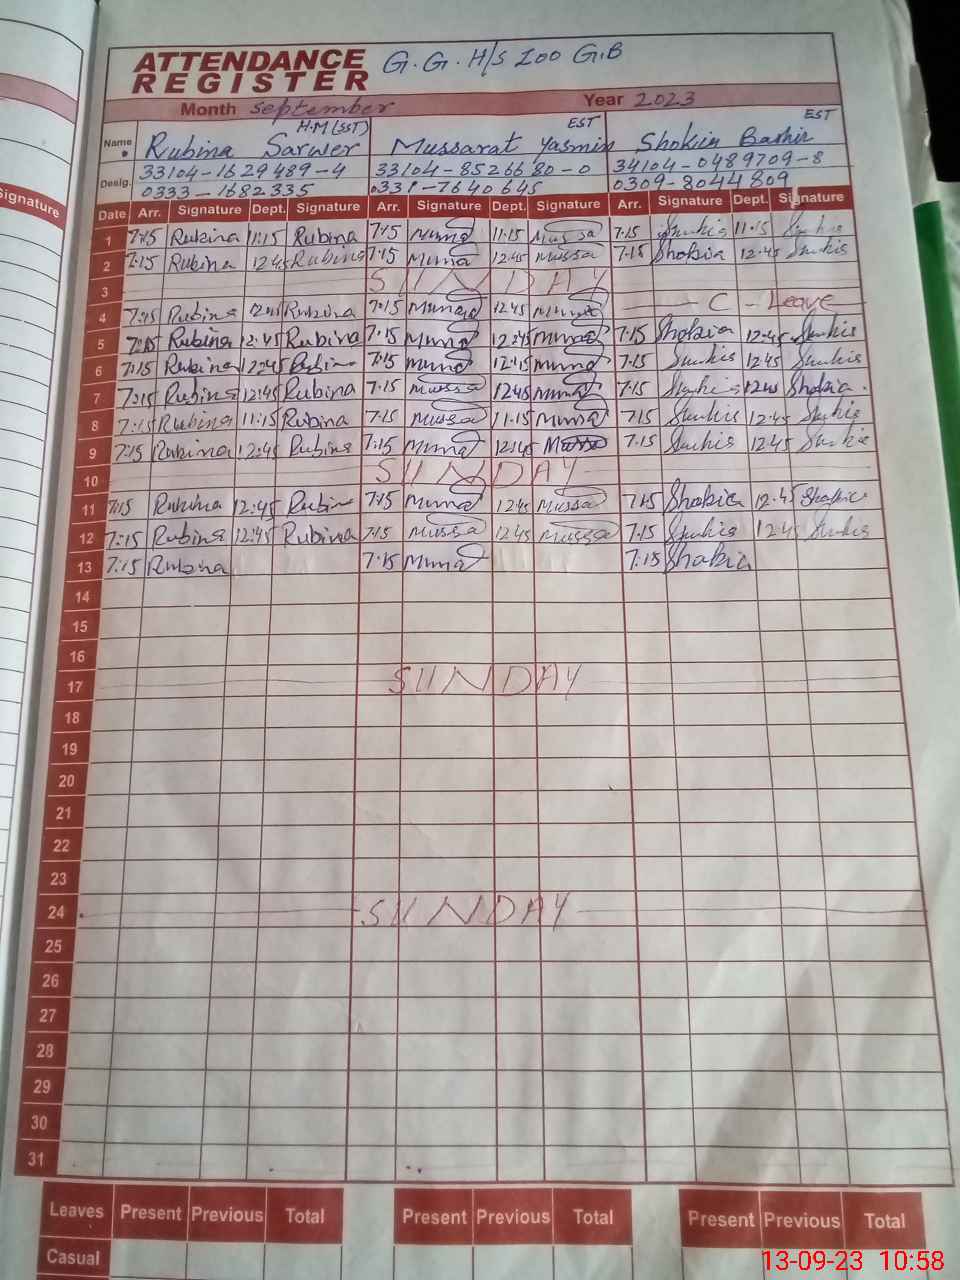 ATTENDANCE REGISTER G.G.H/S 200 G.B
Month September Year 2023
H.M (SST) EST EST
Name Rubina Sarwer Mussarat Yasmin Bashir
Desig. 33104-1629489-4 33104-8526680-0 34104-0489709-8
0333-1682335 7640645 0309-8044809
Signature
Date Arr. Signature Dept. Signature Arr. Signature Dept. Signature Arr. Signature Dept. Signature
1 7:15 Rubina 11:15 Rubina 7:15 11:15 Mussa 7:15 11:15
2 7:15 Rubina 12:45 Rubina 7:15 12:45 Mussa 7:15 12:45
3 SUNDAY
4 7:15 Rubina 12:45 Rubina 7:15 12:45 C - Leave
5 7:15 Rubina 12:45 Rubina 7:15 12:45 7:15 12:45
6 7:15 Rubina 12:45 Rubina 7:15 12:45 7:15 12:45
7 7:15 Rubina 12:45 Rubina 7:15 Mussa 12:45 7:15
8 7:15 Rubina 11:15 Rubina 7:15 Mussa 11:15 7:15 12:45
9 7:15 Rubina 12:45 Rubina 7:15 12:45 7:15 12:45
10 SUNDAY
11 7:15 Rubina 12:45 Rubina 7:15 12:45 Mussa 7:15 12:45
12 7:15 Rubina 12:45 Rubina 7:15 Mussa 12:45 Mussa 7:15 12:45
13 7:15 Rubina 7:15 7:15
14
15
16
17 SUNDAY
18
19
20
21
22
23
24 SUNDAY
25
26
27
28
29
30
31
Leaves Present Previous Total Present Previous Total Present Previous Total
Casual
13-09-23 10:58